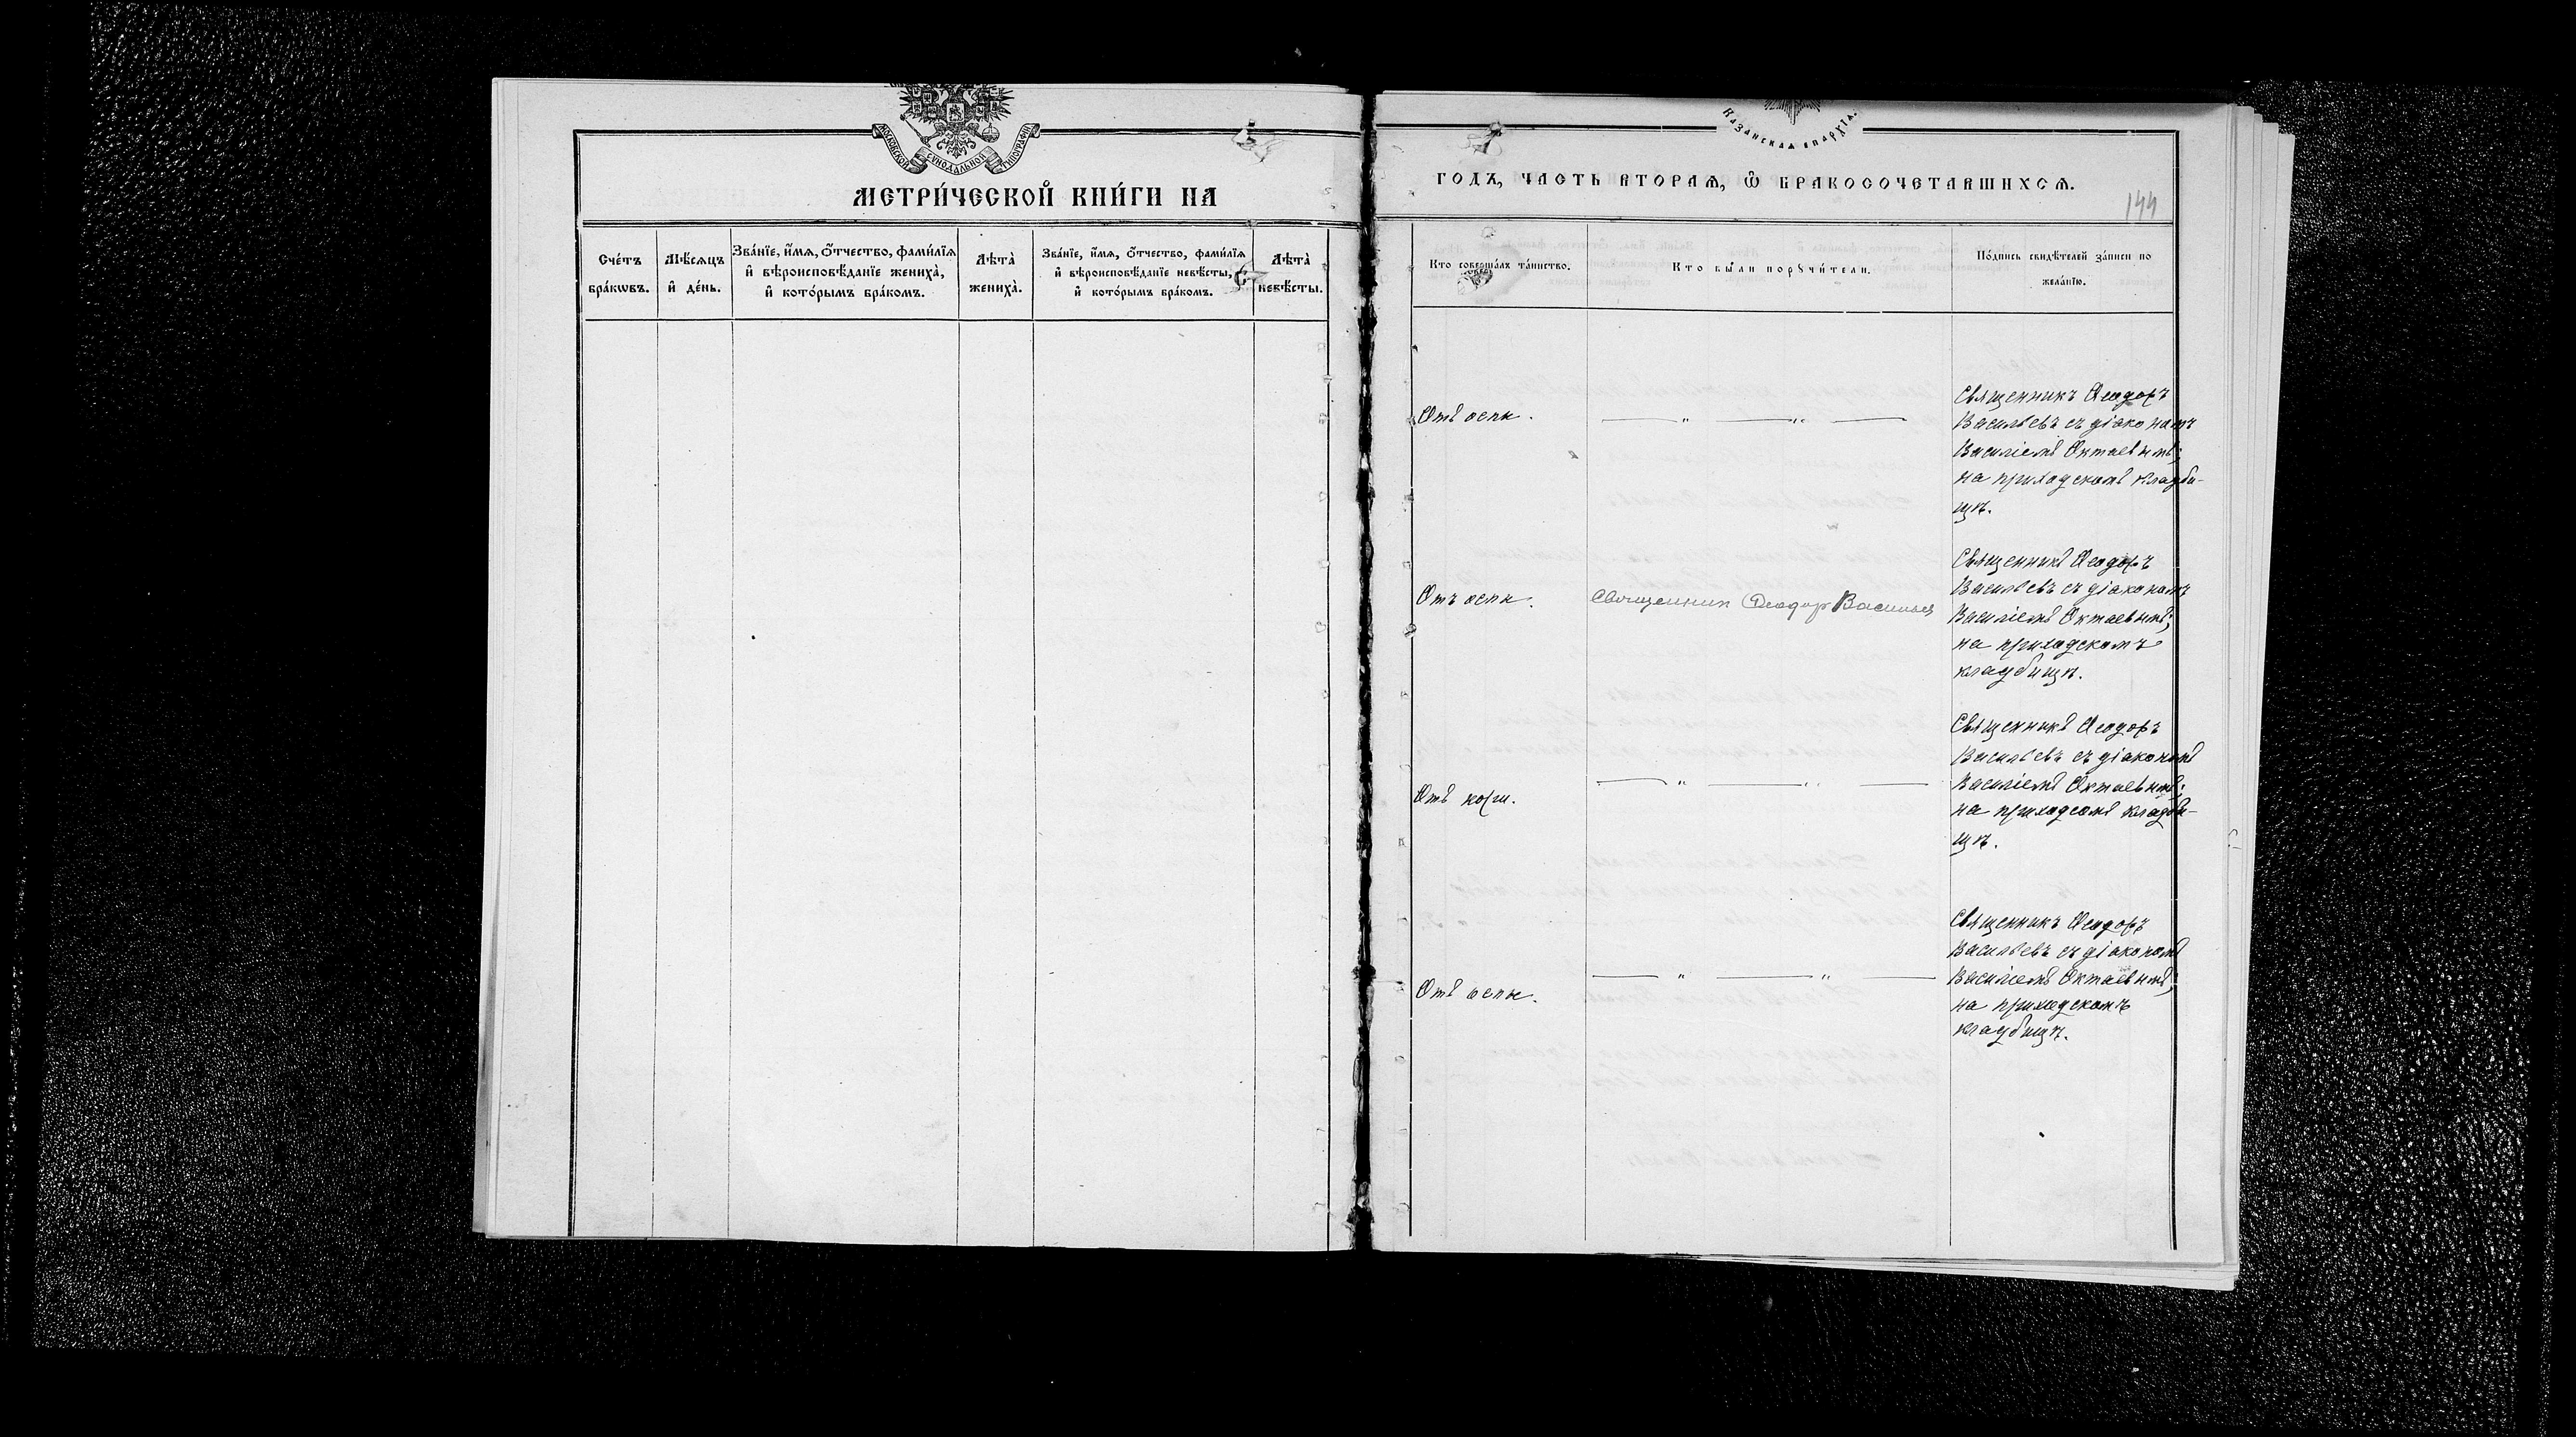 МОСКОВСКОЙ СѴНОДАЛЬНОЙ ТИПОГРАФІИ
МЕТРИ́ЧЕСКОЙ КНИ́ГИ НА
Сче́тъ бра́кѡвъ.
Мѣ́сѧцъ и҆ де́нь.
Зва́нїе, и҆́мѧ, ѻ҆́тчество, фами́лїѧ
и҆ вѣроисповѣ́данїе жениха̀,
и҆ кото́рымъ бра́комъ.
Лѣта̀ жениха̀.
Зва́нїе, и҆́мѧ, ѻ҆́тчество, фами́лїѧ
и҆ вѣроисповѣ́данїе невѣ́сты,
и҆ кото́рымъ бра́комъ.
Лѣта̀ невѣ́сты.
Казанская епархїа.
ГОДЪ, ЧАСТЬ ВТОРАѦ, Ѡ҆ БРАКОСОЧЕТАВШИХСѦ.
144
Кто соверша́лъ та́инство.
Кто бы́ли порꙋчи́тели.
По́дпись свидѣ́телей за́писи по
жела́нїю.
Отъ оспы.
Священникъ Ѳеодоръ
Васильевъ съ діакономъ
Василіемъ Октаевымъ;
на приходскомъ кладби-
щѣ.
Отъ оспы.
Священник Феодор Васильев
Священникъ Ѳеодоръ
Васильевъ съ діакономъ
Василіемъ Октаевымъ;
на приходскомъ
кладбищѣ.
Отъ кори.
Священникъ Ѳеодоръ
Васильевъ съ діакономъ
Василіемъ Октаевымъ;
на приходсомъ кладби-
щѣ.
Отъ оспы.
Священникъ Ѳеодоръ
Васильевъ съ діакономъ
Василіемъ Октаевымъ;
на приходскомъ
кладбищѣ.